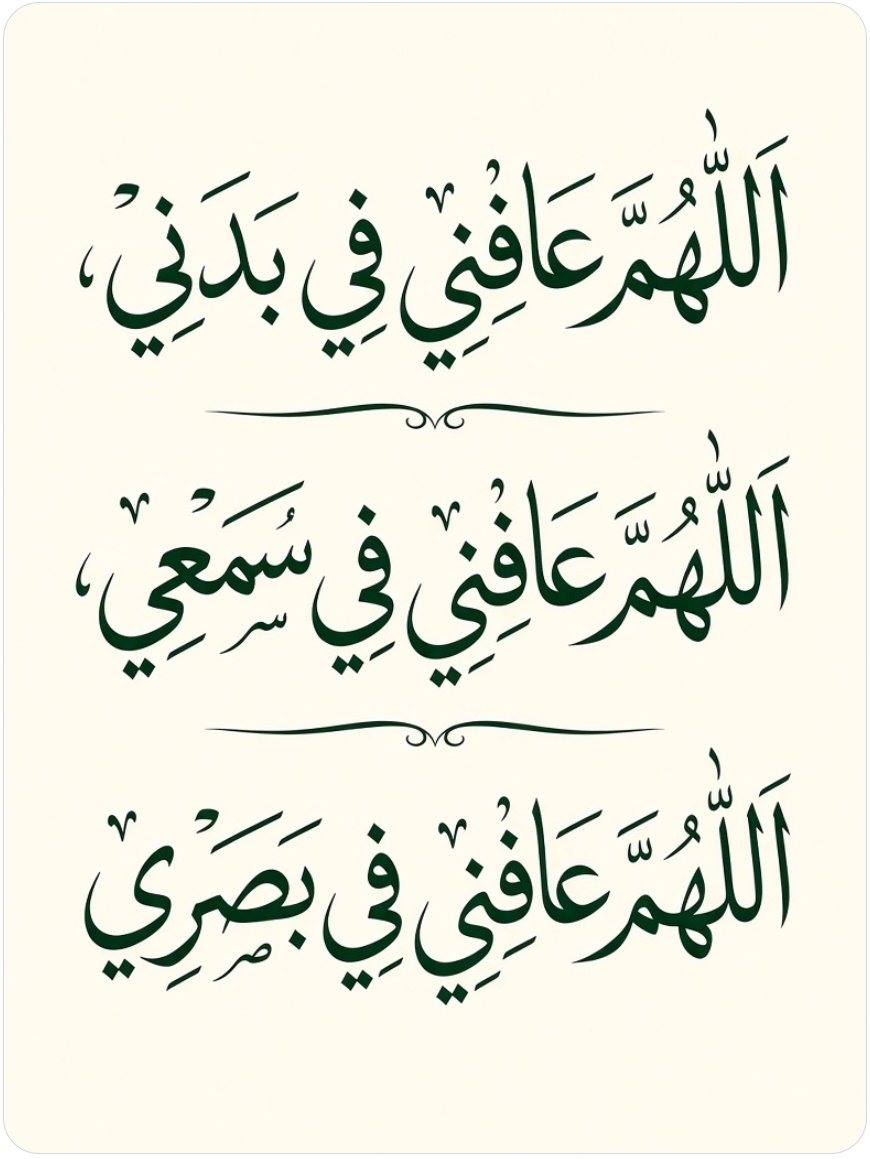 اَللّٰهُمَّ عَافِنِي فِي بَدَنِي،
اَللّٰهُمَّ عَافِنِي فِي سُمَعِي،
اَللّٰهُمَّ عَافِنِي فِي بَصَرِي